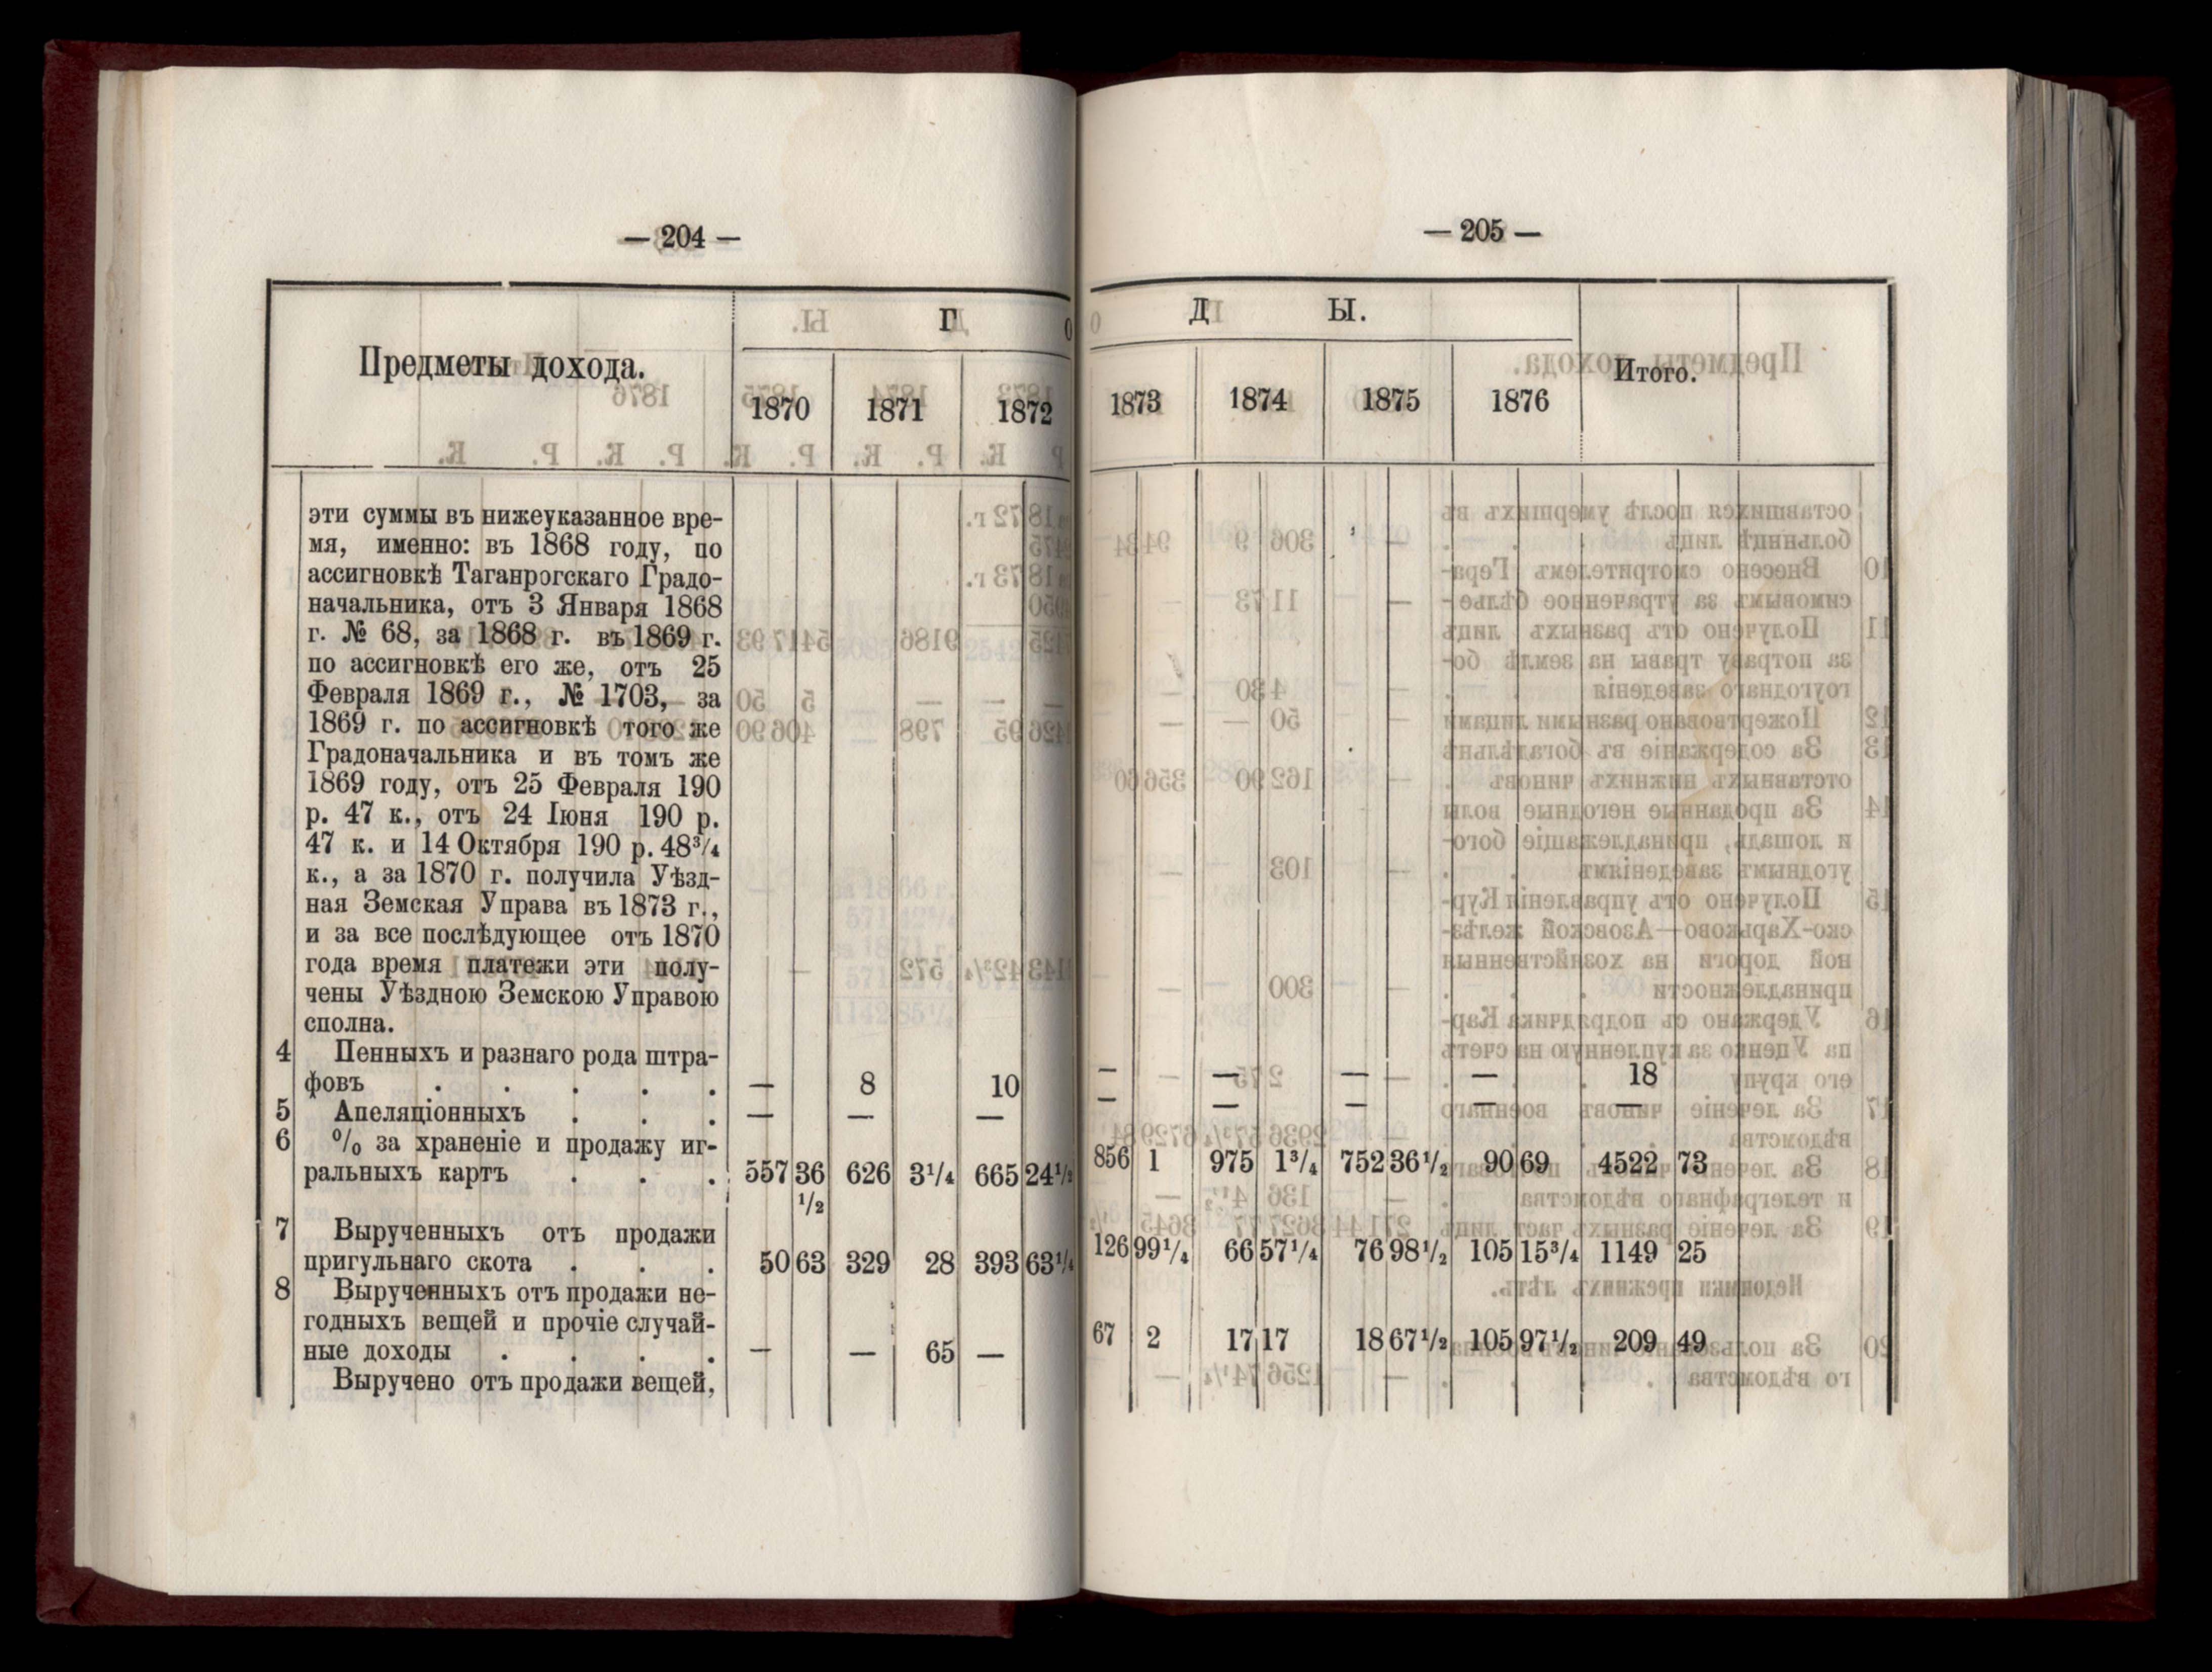 — 204 —
Предметы дохода.
Г О
1870 1871 1872
эти суммы въ нижеуказанное вре-
мя, именно: въ 1868 году, по
ассигновкѣ Таганрогскаго Градо-
начальника, отъ 3 Января 1868
г. № 68, за 1868 г. въ 1869 г.
по ассигновкѣ его же, отъ 25
Февраля 1869 г., № 1703, за
1869 г. по ассигновкѣ того же
Градоначальника и въ томъ же
1869 году, отъ 25 Февраля 190
р. 47 к., отъ 24 Іюня 190 р.
47 к. и 14 Октября 190 р. 48³/₄
к., а за 1870 г. получила Уѣзд-
ная Земская Управа въ 1873 г.,
и за все послѣдующее отъ 1870
года время платежи эти полу-
чены Уѣздною Земскою Управою
сполна.
4 Пенныхъ и разнаго рода штра-
фовъ . . . . . — 8 10
5 Апеляціонныхъ . . . — — —
6 % за храненіе и продажу иг-
ральныхъ картъ . . . 557 36 626 3¹/₄ 665 24¹/₂
¹/₂
7 Вырученныхъ отъ продажи
пригульнаго скота . . . 50 63 329 28 393 63¹/₄
8 Вырученныхъ отъ продажи не-
годныхъ вещей и прочіе случай-
ные доходы . . . . — — 65 —
Выручено отъ продажи вещей,
— 205 —
Д Ы.
Итого.
1873 1874 1875 1876
— — — — 18
— — — — —
856 1 975 1³/₄ 752 36¹/₂ 90 69 4522 73
126 99¹/₄ 66 57¹/₄ 76 98¹/₂ 105 15³/₄ 1149 25
67 2 17 17 18 67¹/₂ 105 97¹/₂ 209 49